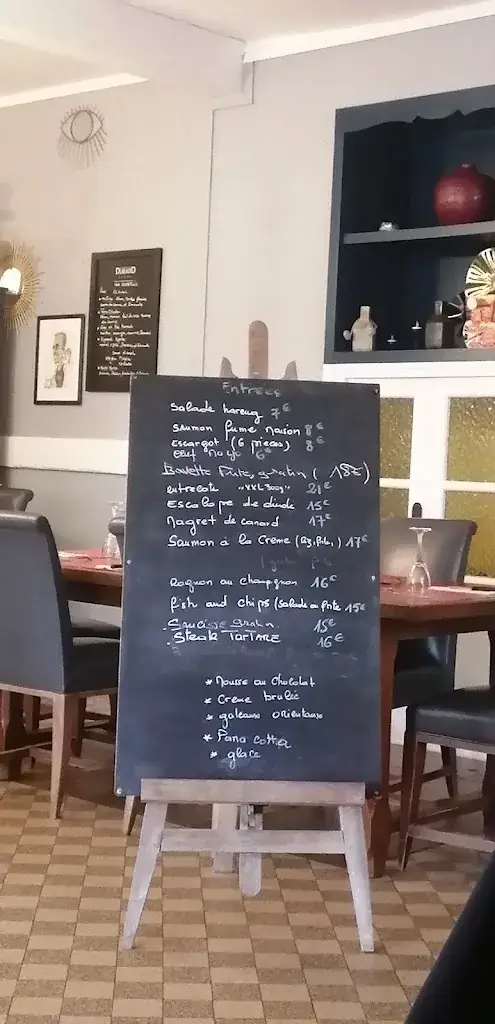 Entrées
Salade hareng 7€
Saumon fumé maison 8€
Escargot (6 pieces) 8€
Oeuf Mayo 6€
Bavette frite, gratin ( 18€)
entrecote "VXL300g" 21€
Escalope de dinde 15€
Magret de canard 17€
Saumon à la Creme (Riz, frite,) 17€
Rognon au champignon 16€
fish and chips (Salade ou frite 15€
Saucisse gratin. 15€
Steak TarTARE 16€
* Mousse au chocolat
* Creme brulée
* gateaux orientaux
* Pana cotta
* glace